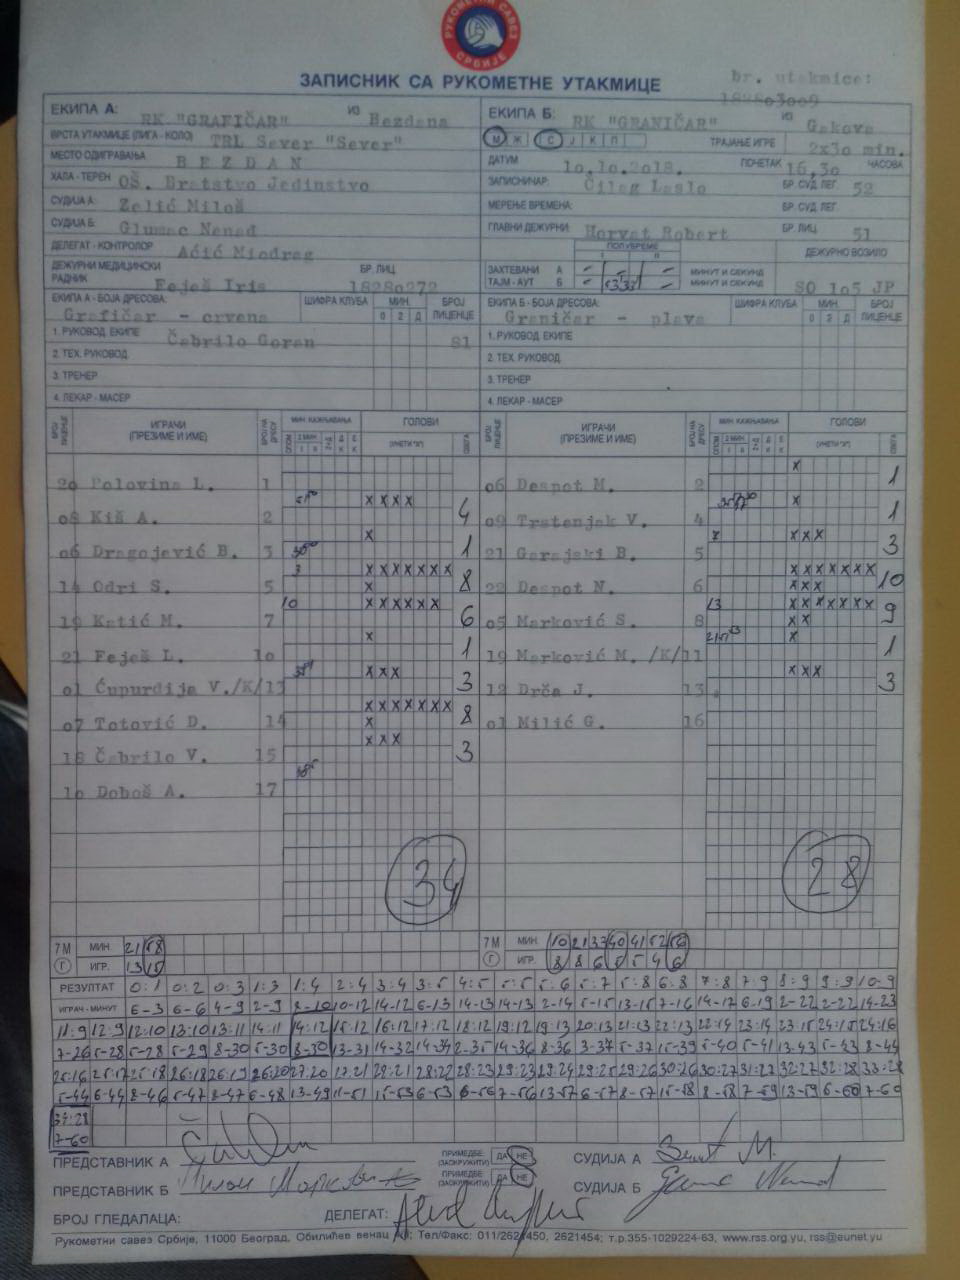 РУКОМЕТНИ САВЕЗ
СРБИЈЕ
ЗАПИСНИК СА РУКОМЕТНЕ УТАКМИЦЕ
br. utakmice:
182803009
ЕКИПА А: RK "GRAFIČAR" ИЗ Bezdana
ЕКИПА Б: RK "GRANIČAR" ИЗ Gakova
ВРСТА УТАКМИЦЕ (ЛИГА - КОЛО) TRL Sever "Sever"
М Ж С Ј К П ТРАЈАЊЕ ИГРЕ 2x30 min.
МЕСТО ОДИГРАВАЊА BEZDAN
ДАТУМ 10.10.2018. ПОЧЕТАК 16,30 ЧАСОВА
ХАЛА - ТЕРЕН OŠ. Bratstvo Jedinstvo
ЗАПИСНИЧАР: Čileg Laslo БР. СУД. ЛЕГ. 52
СУДИЈА А: Zelić Miloš
МЕРЕЊЕ ВРЕМЕНА: БР. СУД. ЛЕГ.
СУДИЈА Б: Glumac Nenad
ГЛАВНИ ДЕЖУРНИ: Horvat Robert БР. ЛИЦ. 51
ДЕЛЕГАТ - КОНТРОЛОР Aćić Miodrag
ПОЛУВРЕМЕ I II ДЕЖУРНО ВОЗИЛО
ДЕЖУРНИ МЕДИЦИНСКИ РАДНИК Feješ Iris БР. ЛИЦ. 18280272
ЗАХТЕВАНИ А МИНУТ И СЕКУНД
ТАЈМ - АУТ Б МИНУТ И СЕКУНД SO 105 JP
ЕКИПА А - БОЈА ДРЕСОВА: Grafičar - crvena ШИФРА КЛУБА МИН. О 2 Д БРОЈ ЛИЦЕНЦЕ
ЕКИПА Б - БОЈА ДРЕСОВА: Graničar - plava ШИФРА КЛУБА МИН. О 2 Д БРОЈ ЛИЦЕНЦЕ
1. РУКОВОД. ЕКИПЕ Čabrilo Goran 81
1. РУКОВОД. ЕКИПЕ
2. ТЕХ. РУКОВОД.
2. ТЕХ. РУКОВОД.
3. ТРЕНЕР
3. ТРЕНЕР
4. ЛЕКАР - МАСЕР
4. ЛЕКАР - МАСЕР
БРОЈ ЛИЦЕНЦЕ ИГРАЧИ (ПРЕЗИМЕ И ИМЕ) БРОЈ НА ДРЕСУ МИН. КАЖЊАВАЊА ГОЛОВИ (УНЕТИ "X") СВЕГА
БРОЈ ЛИЦЕНЦЕ ИГРАЧИ (ПРЕЗИМЕ И ИМЕ) БРОЈ НА ДРЕСУ МИН. КАЖЊАВАЊА ГОЛОВИ (УНЕТИ "X") СВЕГА
20 Polovina L. 1
06 Despot M. 2 x 1
08 Kiš A. 2 xxxx 4
09 Trstenjak V. 4 x 1
06 Dragojević B. 3 x 1
21 Garajski B. 5 7 xxx 3
14 Odri S. 5 3 xxxxxxx x 8
22 Despot N. 6 xxxxxxx xxx 10
19 Katić M. 7 10 xxxxxx 6
05 Marković S. 8 13 xxxxxxx xx 9
21 Feješ L. 10 x 1
19 Marković M. /K/11 x 1
01 Ćupurdija V./K/13 xxx 3
12 Drča J. 13 xxx 3
07 Totović D. 14 xxxxxxx x 8
01 Milić G. 16
18 Čabrilo V. 15 xxx 3
10 Doboš A. 17
34
28
7 М МИН. 21 58
7 М МИН. 10 21 37 40 41 52 56
Г ИГР. 13 15
Г ИГР. 8 8 6 5 5 4 6
РЕЗУЛТАТ 0:1 0:2 0:3 1:3 1:4 2:4 3:4 3:5 4:5 5:5 5:6 5:7 5:8 6:8 7:8 7:9 8:9 9:9 10-9
ИГРАЧ - МИНУТ 6-3 6-6 4-9 2-9 8-10 10-12 14-12 6-13 14-13 14-13 2-14 5-15 13-15 7-16 14-17 6-19 2-22 2-22 14-23
11:9 12:9 12:10 13:10 13:11 14:11 14:12 15:12 16:12 17:12 18:12 19:12 19:13 20:13 21:13 22:13 22:14 23:14 23:15 24:15 24:16
7-26 5-28 5-28 5-29 8-30 5-30 8-30 13-31 14-32 14-34 2-35 14-36 8-36 3-37 6-37 15-39 5-40 5-41 13-43 5-43 8-44
25:16 25:17 25:18 26:18 26:19 26:20 27:20 27:21 28:21 28:22 28:23 29:23 29:24 29:25 29:26 30:26 30:27 31:27 32:27 32:28 33:28
5-44 6-44 8-46 5-47 8-47 6-48 13-49 11-51 15-53 6-53 6-56 7-56 13-57 6-57 8-57 15-58 8-58 7-59 13-59 6-60 7-60
34:28
7-60
ПРЕДСТАВНИК А ПРИМЕДБЕ (ЗАОКРУЖИТИ) ДА НЕ СУДИЈА А
ПРЕДСТАВНИК Б ПРИМЕДБЕ (ЗАОКРУЖИТИ) ДА НЕ СУДИЈА Б
БРОЈ ГЛЕДАЛАЦА: ДЕЛЕГАТ:
Рукометни савез Србије, 11000 Београд, Обилићев венац Тел/Факс: 011/2621450, 2621454; т.р.355-1029224-63, www.rss.org.yu, rss@eunet.yu